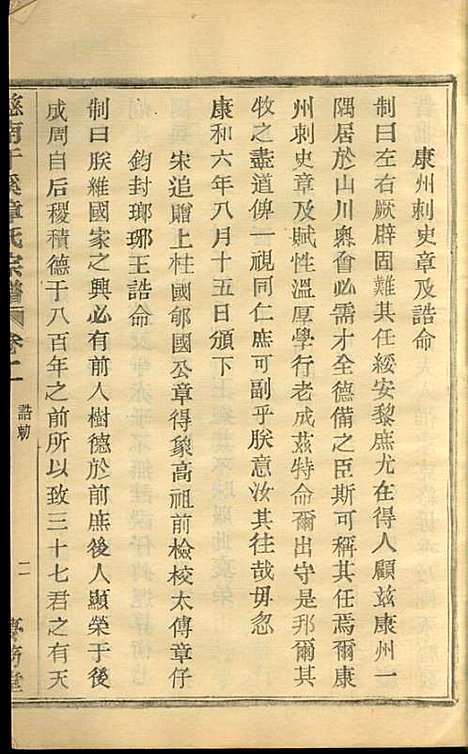 康州刺史章及誥命
制曰左右厥辟固難其任綏安黎庶尤在得人顧茲康州一
隅居於山川奧會必需才全德備之臣斯可稱其任焉爾康
州刺史章及賦性溫厚學行老成茲特命爾出守是邦爾其
牧之盡道俾一視同仁庶可副乎朕意汝其往哉毋忽
康和六年八月十五日頒下
宋追贈上柱國郇國公章得象高祖前檢校太傅章仔
鈞封瑯琊王誥命
制曰朕維國家之興必有前人樹德於前庶後人顯榮于後
成周自后稷積德于八百年之前所以致三十七君之有天
慈南干溪章氏宗譜 卷一
誥勅
二